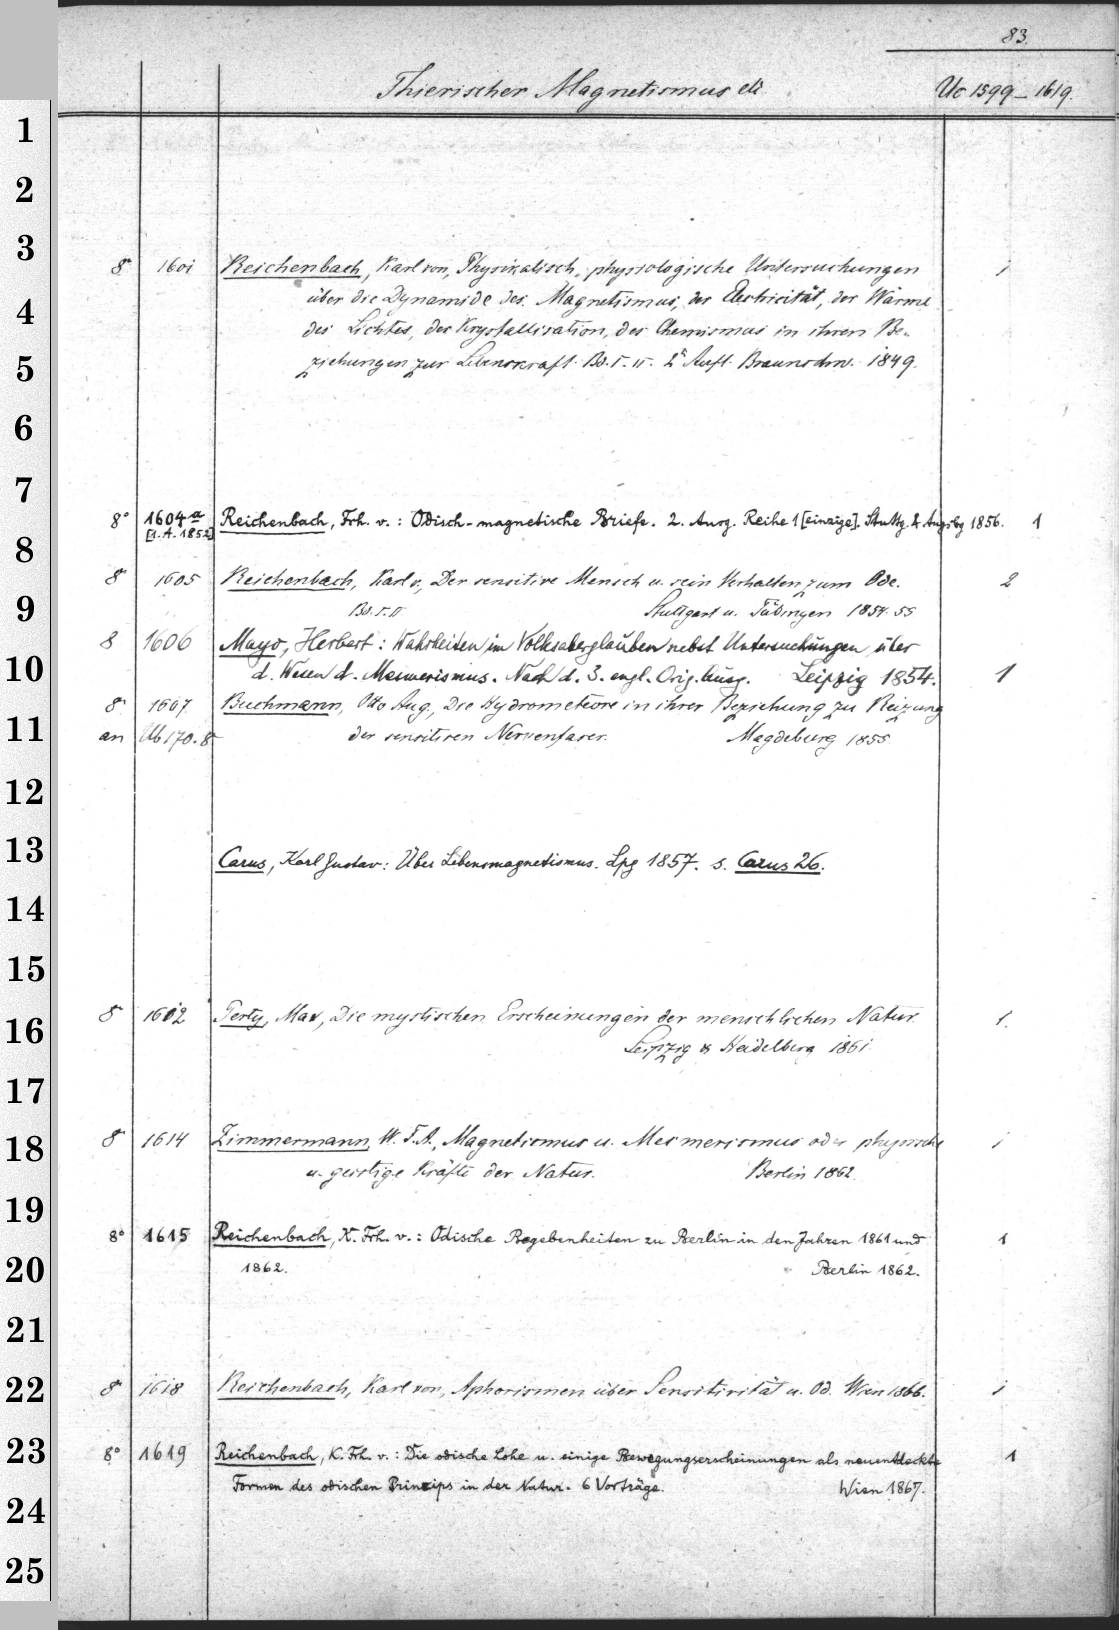 83.
Thierischer Magnetismus etc
Uc 1599–1619.
1
2
3
8° 1601 Reichenbach, Karl von, Physikalisch-physiologische Untersuchungen 1
über die Dynamide des Magnetismus, der Electricität, der Wärme
4
des Lichtes, der Krystallisation, des Chemismus in ihren Be-
5
ziehungen zur Lebenskraft. Bd. I. II. 2e Aufl. Braunschw. 1849.
6
7
8° 1604a Reichenbach, Frh. v.: Odisch-magnetische Briefe. 2. Ausg. Reihe 1 [einzige]. Stuttg. & Augsbg 1856. 1
[1. A. 1852]
8
8° 1605 Reichenbach, Karl v., Der sensitive Mensch u. sein Verhalten zum Ode. 2
9
Bd. I. II Stuttgart u. Tübingen 1854.55
8 1606 Mayo, Herbert: Wahrheiten im Volksaberglauben nebst Untersuchungen über
10
d. Wesen d. Mesmerismus. Nach d. 3. engl. Orig. Ausg. Leipzig 1854. 1
8° 1607 Buchmann, Otto Aug., Die Hydrometeore in ihrer Beziehung zu Reizung
11
an Ub 170.8° der sensitiven Nervenfaser. Magdeburg 1855
12
13
Carus, Karl Gustav: Über Lebensmagnetismus. Lpg 1857. s. Carus 26.
14
15
8° 1612 Perty, Max, Die mystischen Erscheinungen der menschlichen Natur. 1.
16
Leipzig & Heidelberg 1861.
17
18
8° 1614 Zimmermann, W. F. A., Magnetismus u. Mesmerismus oder physische 1
u. geistige Kräfte der Natur. Berlin 1862.
19
8° 1615 Reichenbach, K. Frh. v.: Odische Begebenheiten zu Berlin in den Jahren 1861 und 1
20
1862. Berlin 1862.
21
22
8° 1618 Reichenbach, Karl von, Aphorismen über Sensitivität u. Od. Wien 1866. 1
23
8° 1619 Reichenbach, K. Frh. v.: Die odische Lohe u. einige Bewegungserscheinungen als neuentdeckte 1
Formen des odischen Prinzips in der Natur. 6 Vorträge. Wien 1867.
24
25